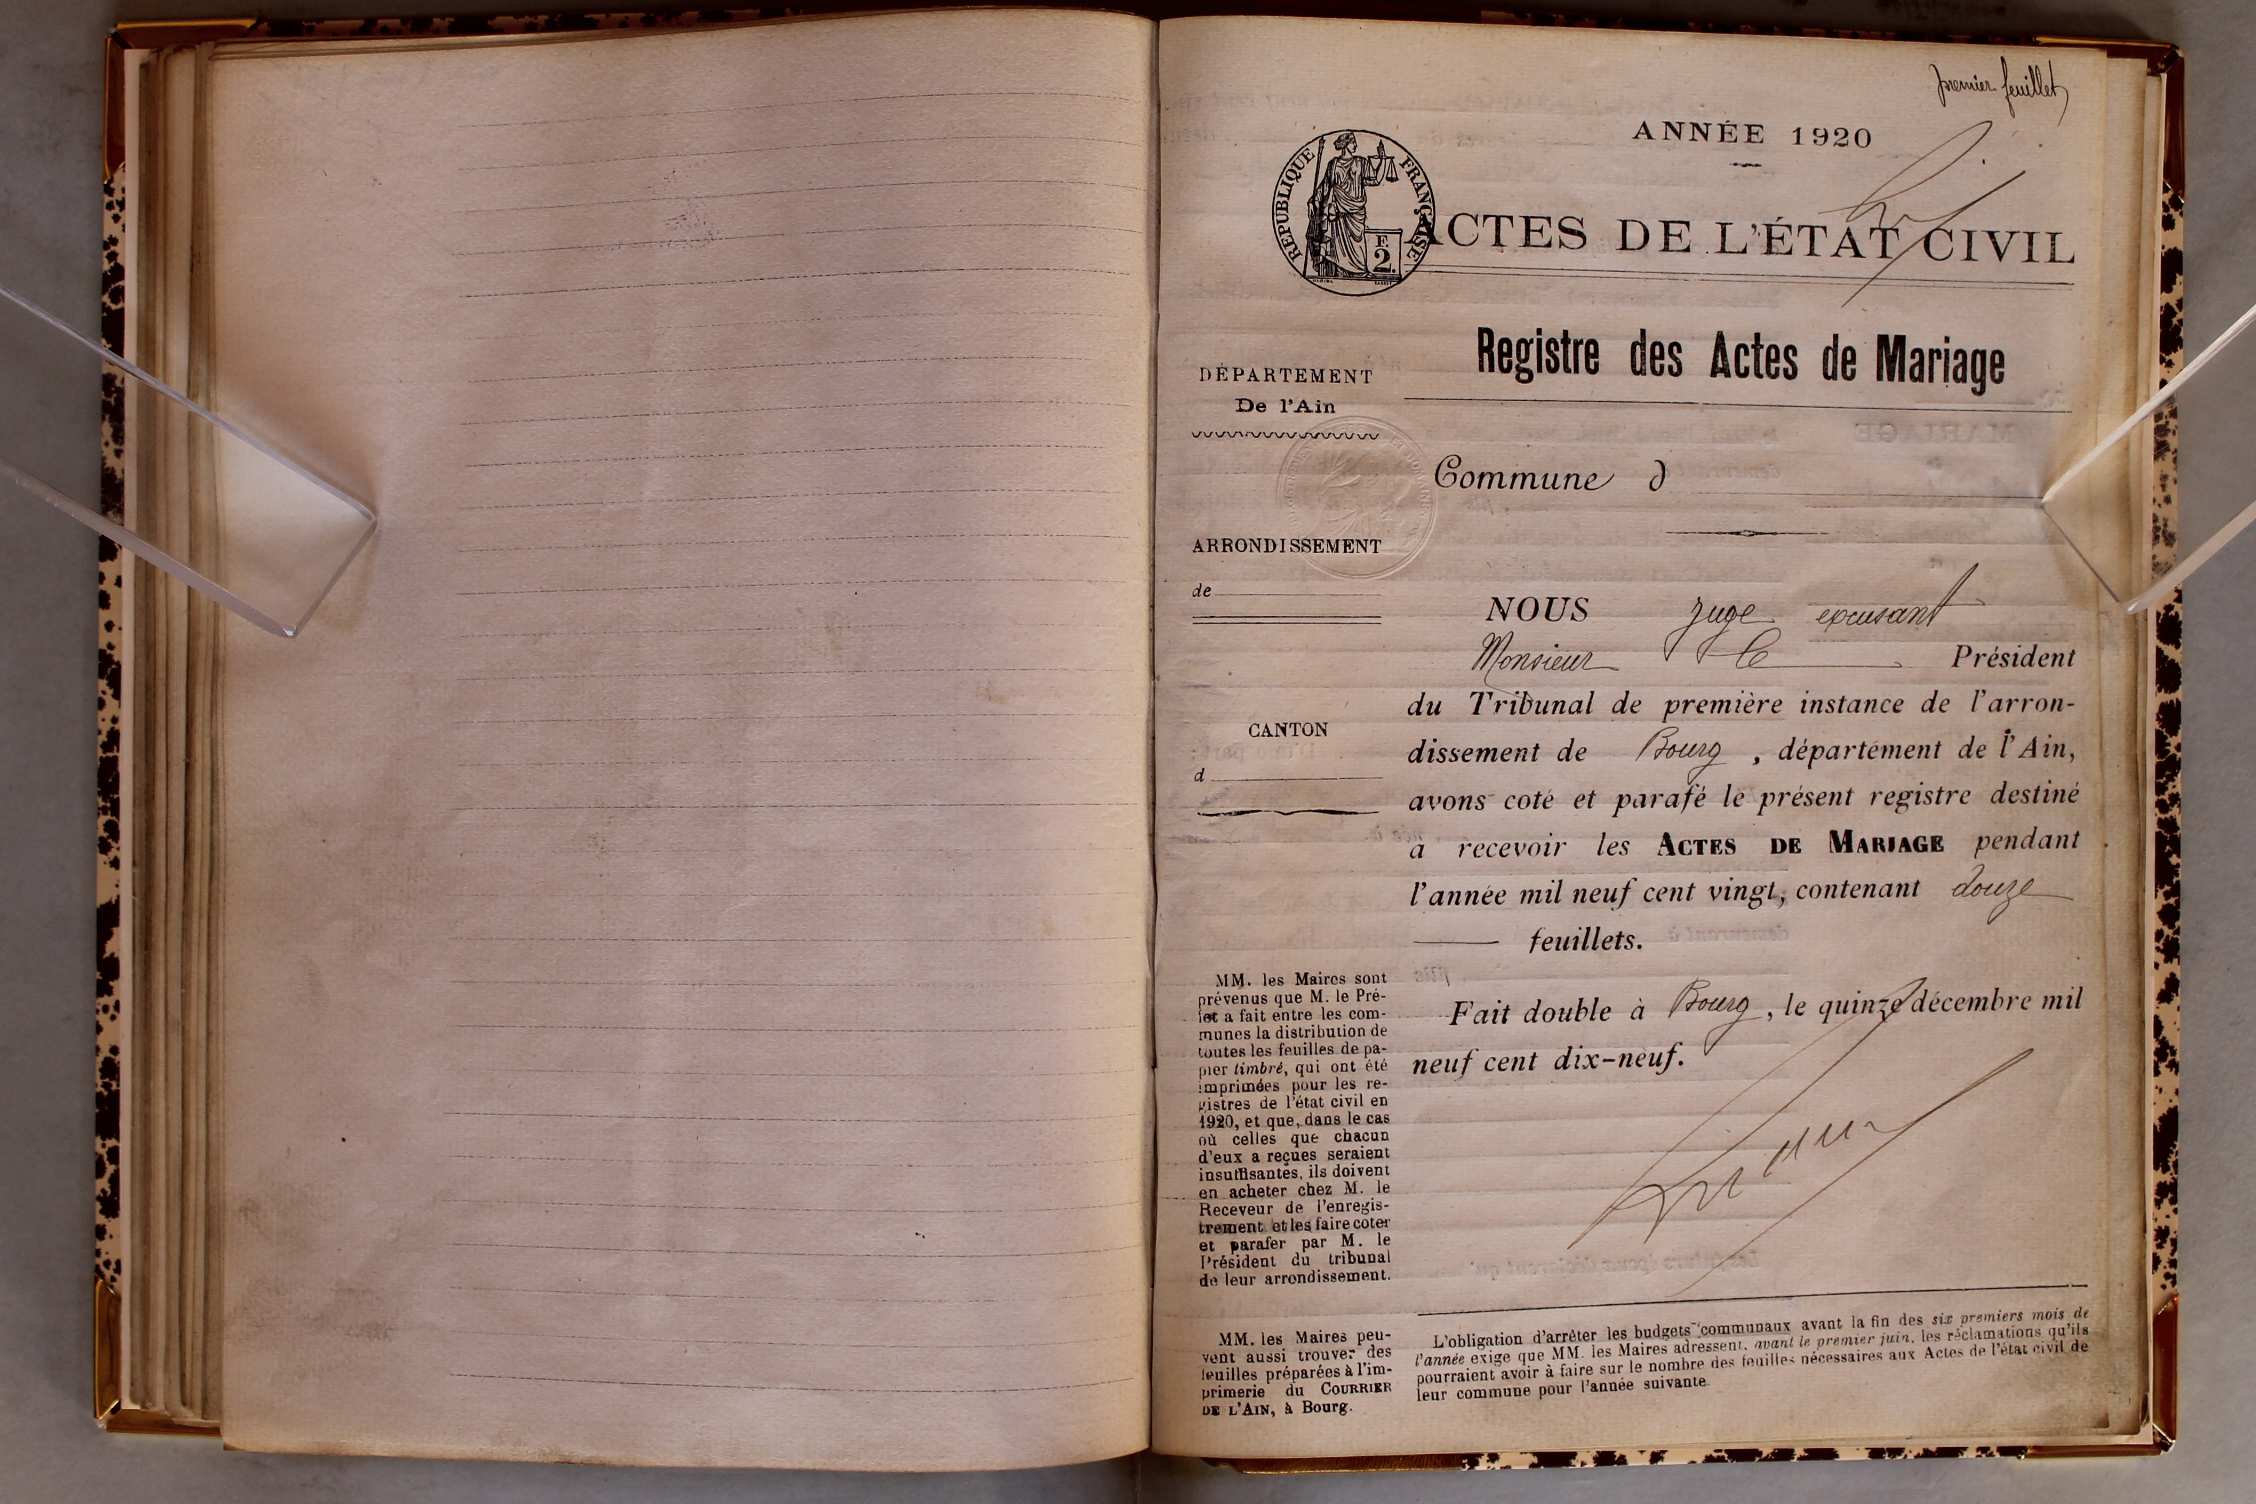 premier feuillet
ANNÉE 1920
RÉPUBLIQUE FRANÇAISE
F.
2.
ACTES DE L'ÉTAT CIVIL
Registre des Actes de Mariage
DÉPARTEMENT
De l'Ain
Commune d
ARRONDISSEMENT
de
CANTON
d
NOUS Juge excusant
Monsieur le Président
du Tribunal de première instance de l'arron-
dissement de Bourg, département de l'Ain,
avons coté et parafé le présent registre destiné
à recevoir les ACTES DE MARIAGE pendant
l'année mil neuf cent vingt, contenant douze
feuillets.
Fait double à Bourg, le quinze décembre mil
neuf cent dix-neuf.
MM. les Maires sont
prévenus que M. le Pré-
fet a fait entre les com-
munes la distribution de
toutes les feuilles de pa-
pier timbré, qui ont été
imprimées pour les re-
gistres de l'état civil en
1920, et que, dans le cas
où celles que chacun
d'eux a reçues seraient
insuffisantes, ils doivent
en acheter chez M. le
Receveur de l'enregis-
trement et les faire coter
et parafer par M. le
Président du tribunal
de leur arrondissement.
MM. les Maires peu-
vent aussi trouver des
feuilles préparées à l'im-
primerie du COURRIER
DE L'AIN, à Bourg.
L'obligation d'arrêter les budgets communaux avant la fin des six premiers mois de
l'année exige que MM. les Maires adressent, avant le premier juin, les réclamations qu'ils
pourraient avoir à faire sur le nombre des feuilles nécessaires aux Actes de l'état civil de
leur commune pour l'année suivante.